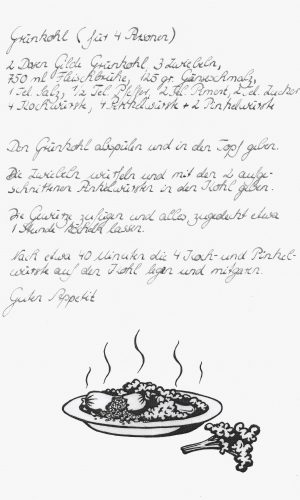 Grünkohl (für 4 Personen)
2 Dosen Gilde Grünkohl, 3 Zwiebeln,
750 ml Fleischbrühe, 125 gr. Gänseschmalz,
1 Tel Salz, 1/2 Tel Pfeffer, 2 Tel Piment, 2 Tel. Zucker
4 Kochwürste, 4 Pinkelwürste + 2 Pinkelwürste
Den Grünkohl abspülen und in den Topf geben.
Die Zwiebeln würfeln und mit den 2 aufge-
schnittenen Pinkelwürsten in den Kohl geben.
Die Gewürze zufügen und alles zugedeckt etwa
1 Stunde köcheln lassen.
Nach etwa 40 Minuten die 4 Koch- und Pinkel-
würste auf den Kohl legen und mitgaren.
Guten Appetit